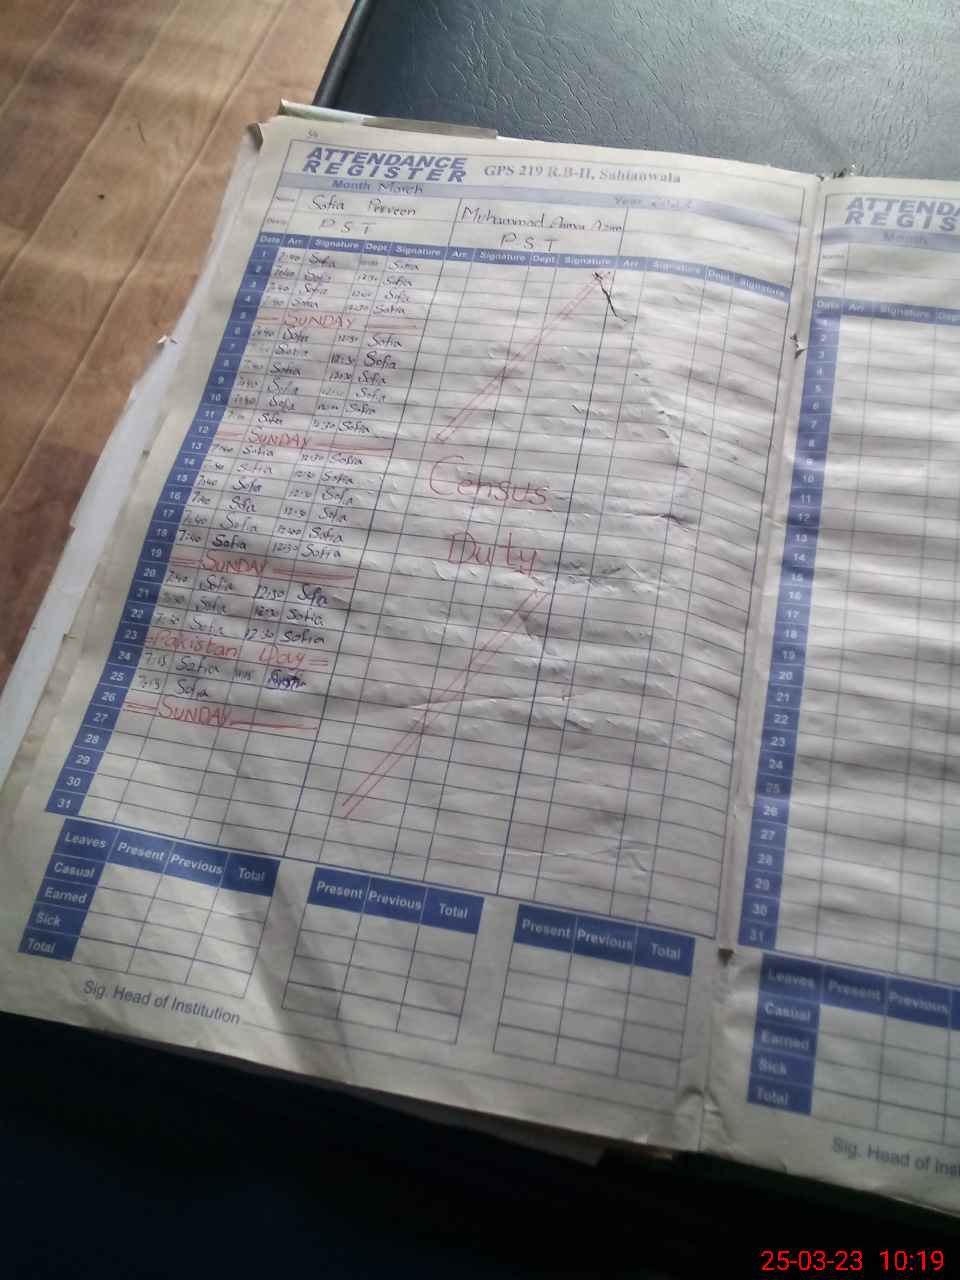 ATTENDANCE REGISTER GPS 219 R.B-II, Sahianwala
Month March Year
Name Safia Perveen Muhammad
P S T P S T
Date Arr. Signature Dept. Signature Arr. Signature Dept. Signature Arr. Signature Dept. Signature
1 7:40 Safia Safia
2 Safia 12:30 Safia
3 7:40 Safia Safia
4 Safia 12:30 Safia
5 SUNDAY
6 Safia 12:30 Safia
7 Safia 12:30 Safia
8 7:40 Safia 12:30 Safia
9 7:40 Safia Safia
10 Safia Safia
11 Safia 12:30 Safia
12 SUNDAY
13 7:40 Safia 12:30 Safia
14 Safia 12:30 Safia
15 7:40 Safia 12:30 Safia
16 7:40 Safia 12:30 Safia
17 7:40 Safia 12:00 Safia
18 7:40 Safia 12:30 Safia
19 SUNDAY
20 7:40 Safia 12:30 Safia
21 Safia 12:30 Safia
22 7:30 Safia 12:30 Safia
23 Pakistan Day
24 7:15 Safia
25 7:15 Safia
26 SUNDAY
27
28
29
30
31
Census
Duty
Leaves Present Previous Total Present Previous Total Present Previous Total
Casual
Earned
Sick
Total
Sig. Head of Institution
ATTENDA
REGIS
Month
Name
Date Arr. Signature Dept
1
2
3
4
5
6
7
8
9
10
11
12
13
14
15
16
17
18
19
20
21
22
23
24
25
26
27
28
29
30
31
Leaves Present Previous
Casual
Earned
Sick
Total
Sig. Head of Ins
25-03-23 10:19